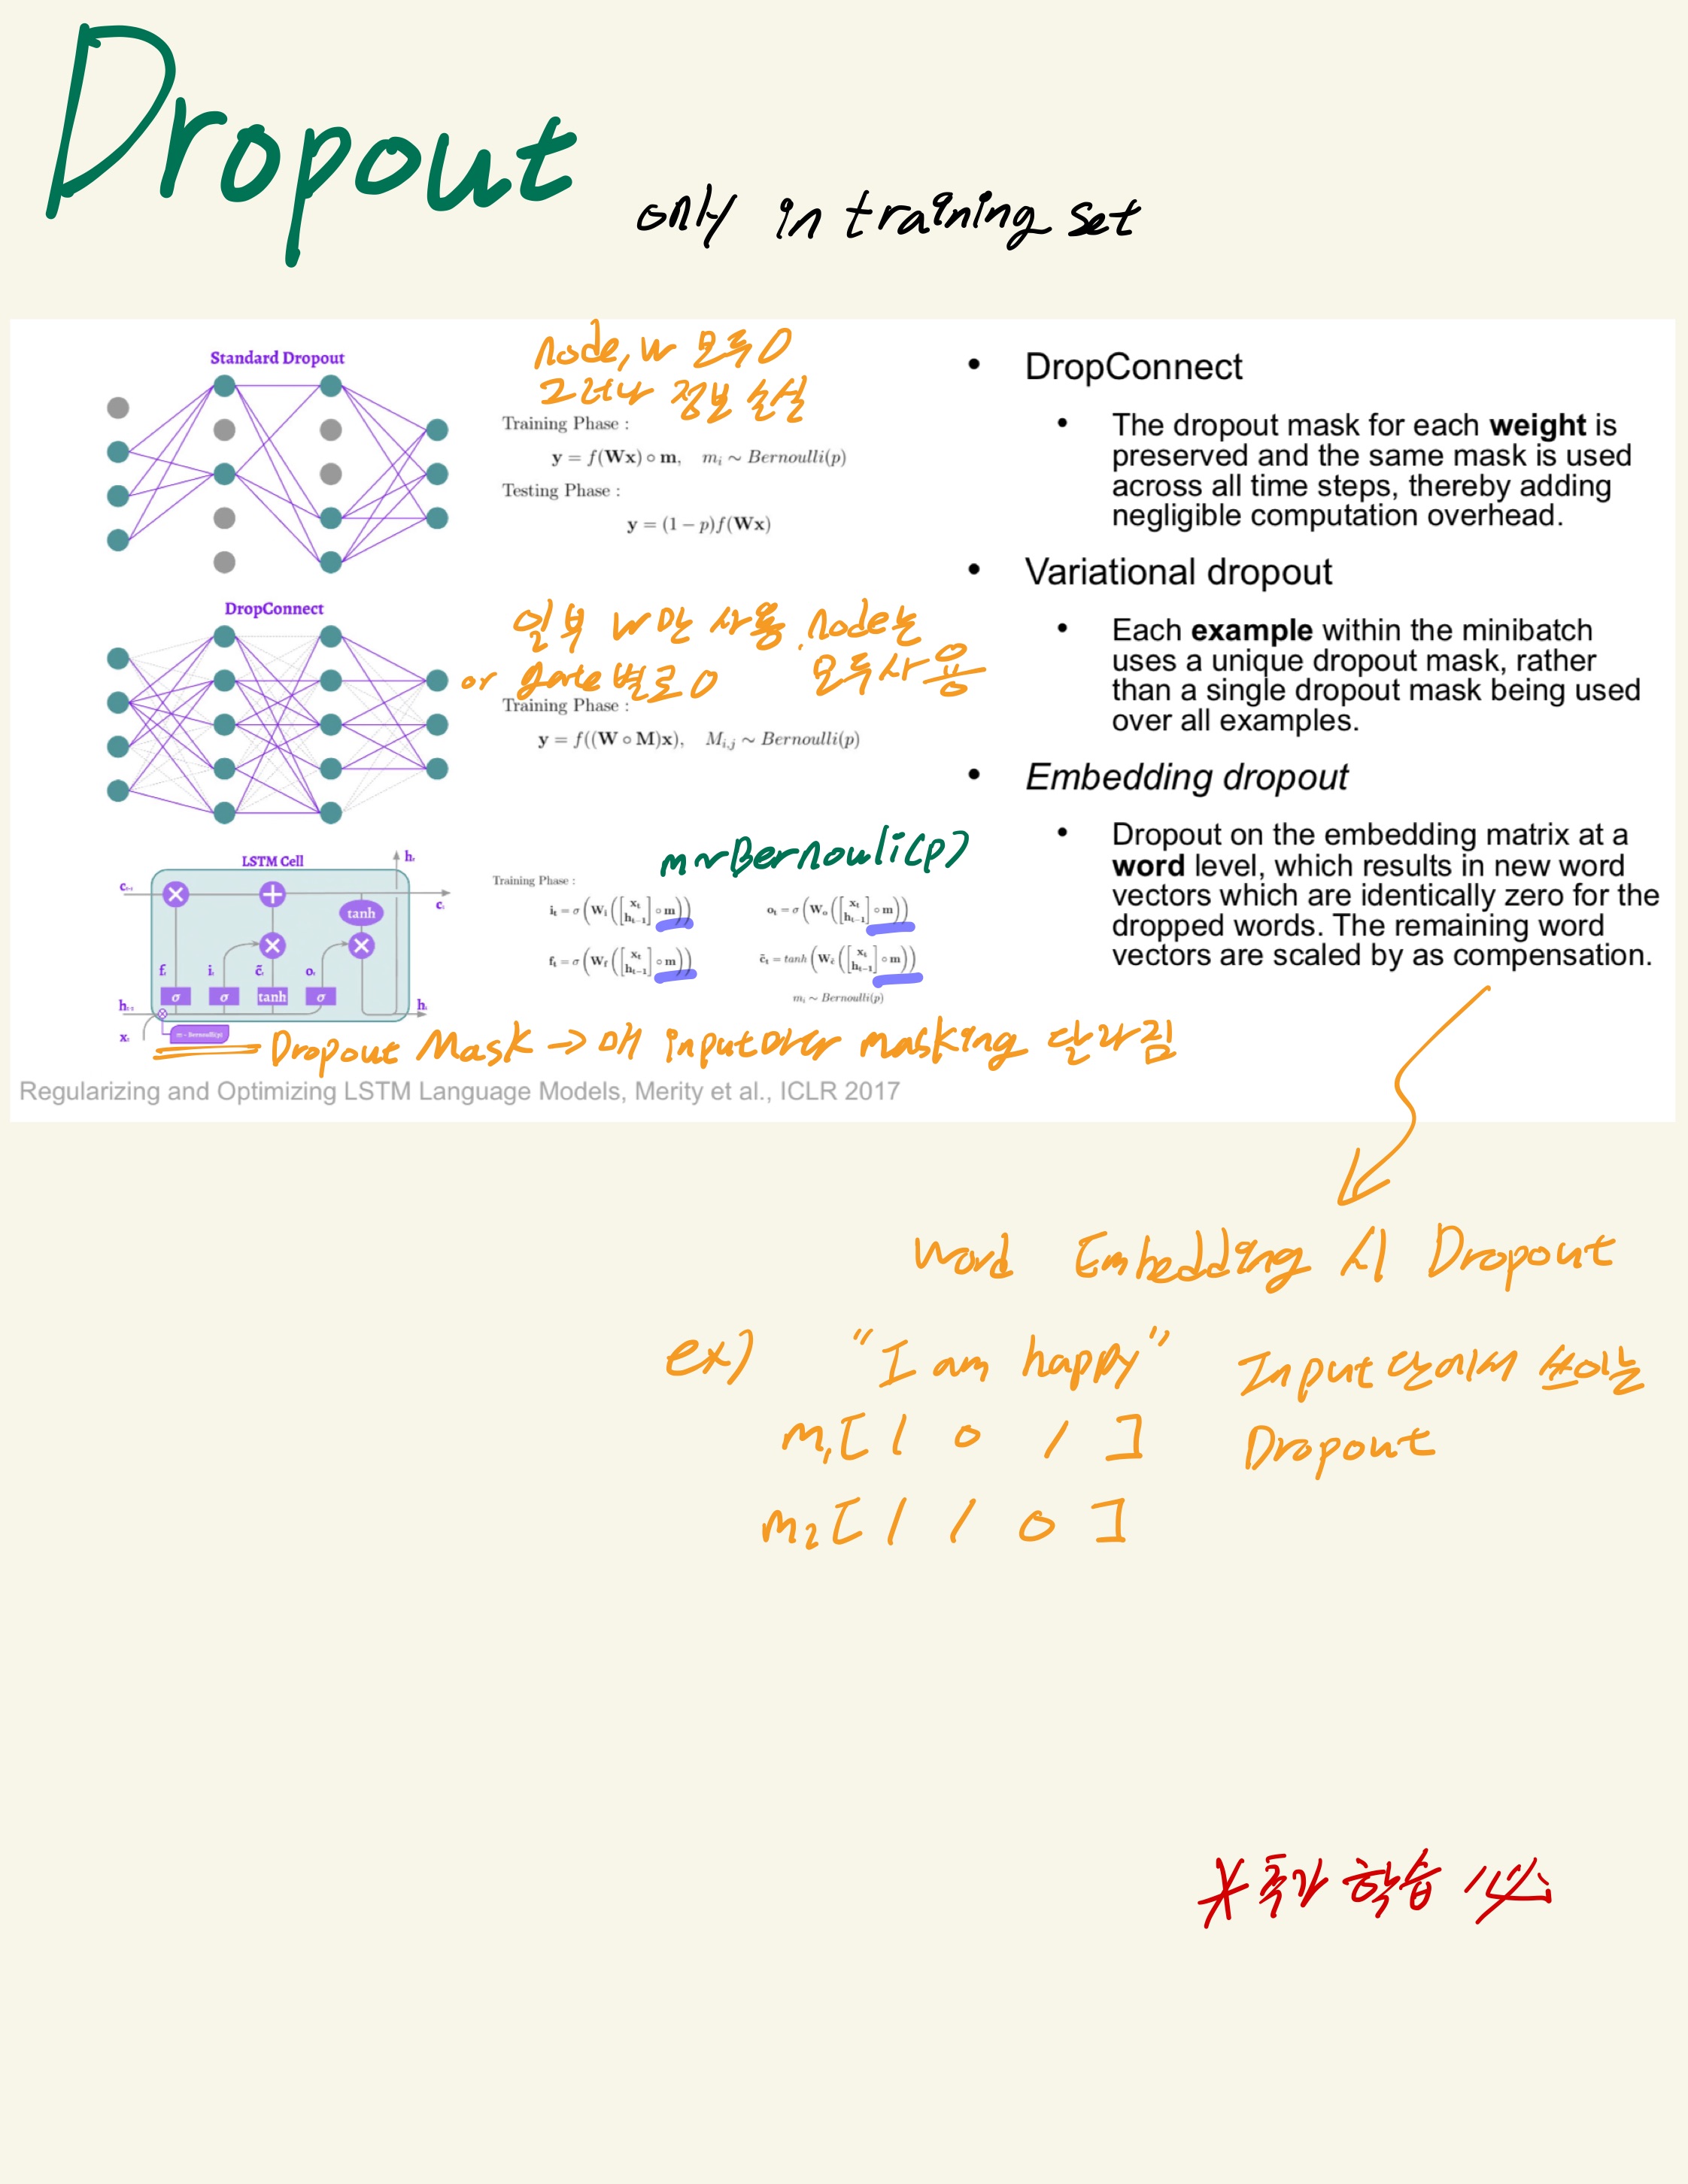 Dropout
only in training set
Standard Dropout
node, w 모두 0
그러나 정보 손실
Training Phase :
y = f(Wx) ∘ m, m_i ~ Bernoulli(p)
Testing Phase :
y = (1 − p)f(Wx)
DropConnect
일부 w만 사용. node는
모두 사용
or gate별로 0
Training Phase :
y = f((W ∘ M)x), M_{i,j} ~ Bernoulli(p)
LSTM Cell
h_t
c_{t-1}
c_t
tanh
f_t i_t c̃_t o_t
σ σ tanh σ
h_{t-1}
h_t
x_t
m ~ Bernoulli(p)
m~Bernouli(p)
Training Phase :
i_t = σ(W_i([x_t h_{t−1}] ∘ m))
o_t = σ(W_o([x_t h_{t−1}] ∘ m))
f_t = σ(W_f([x_t h_{t−1}] ∘ m))
c̃_t = tanh(W_c̃([x_t h_{t−1}] ∘ m))
m_i ~ Bernoulli(p)
Dropout Mask → 매 input마다 masking 달라짐
Regularizing and Optimizing LSTM Language Models, Merity et al., ICLR 2017
• DropConnect
• The dropout mask for each weight is
preserved and the same mask is used
across all time steps, thereby adding
negligible computation overhead.
• Variational dropout
• Each example within the minibatch
uses a unique dropout mask, rather
than a single dropout mask being used
over all examples.
• Embedding dropout
• Dropout on the embedding matrix at a
word level, which results in new word
vectors which are identically zero for the
dropped words. The remaining word
vectors are scaled by as compensation.
word Embedding 시 Dropout
ex) "I am happy" Input단에서 쓰이는
m₁[ 1 0 1 ] Dropout
m₂[ 1 1 0 ]
추가 학습 必